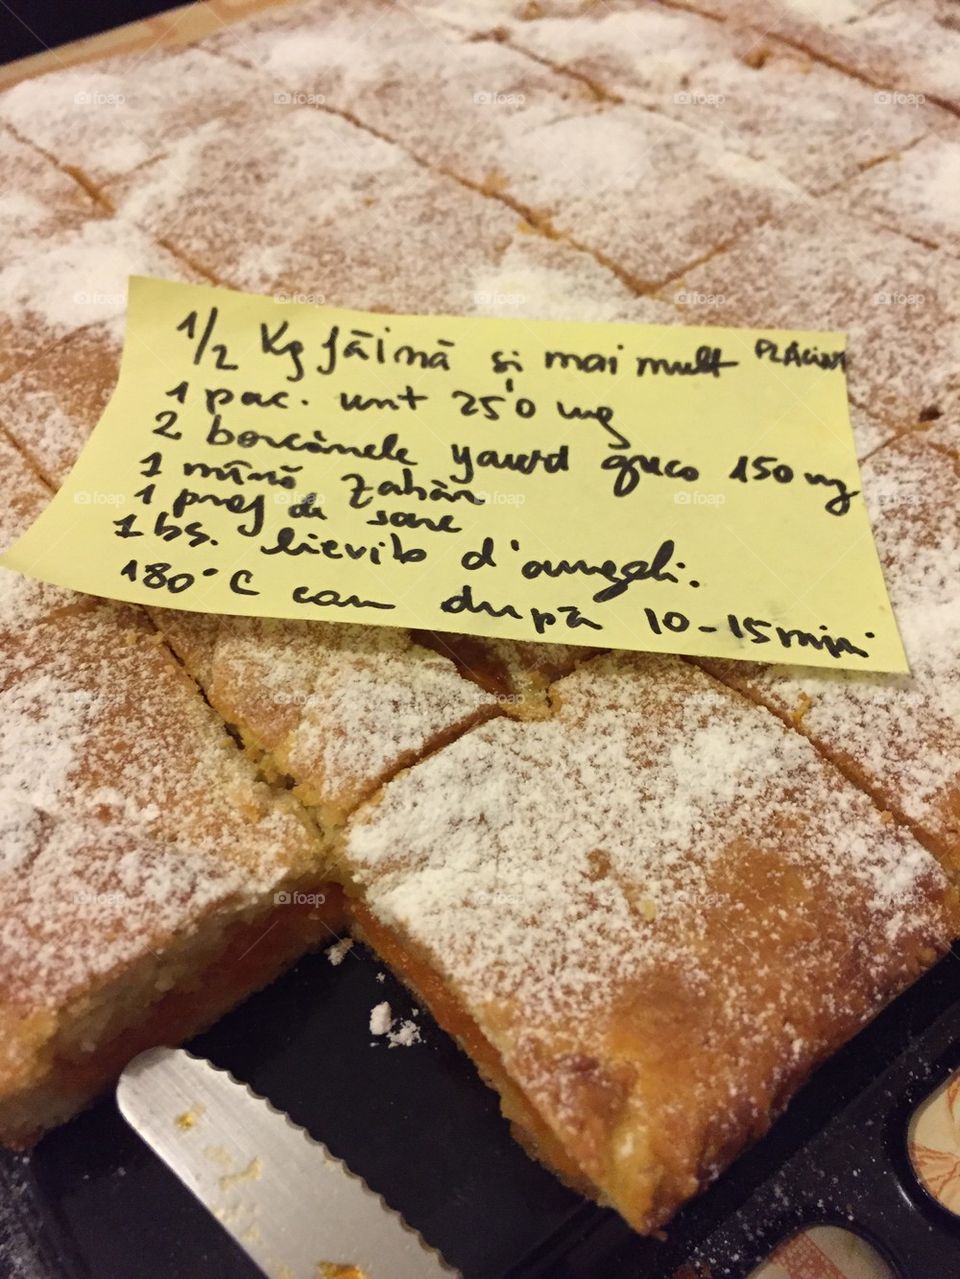 1/2 Kg făină și mai mult PLĂCINT
1 pac. unt 250 mg
2 borcănele yaurd greco 150 mg
1 mână zahăr
1 praf de sare
1 bs. lievito d'angeli.
180°C cam după 10-15 min
foap